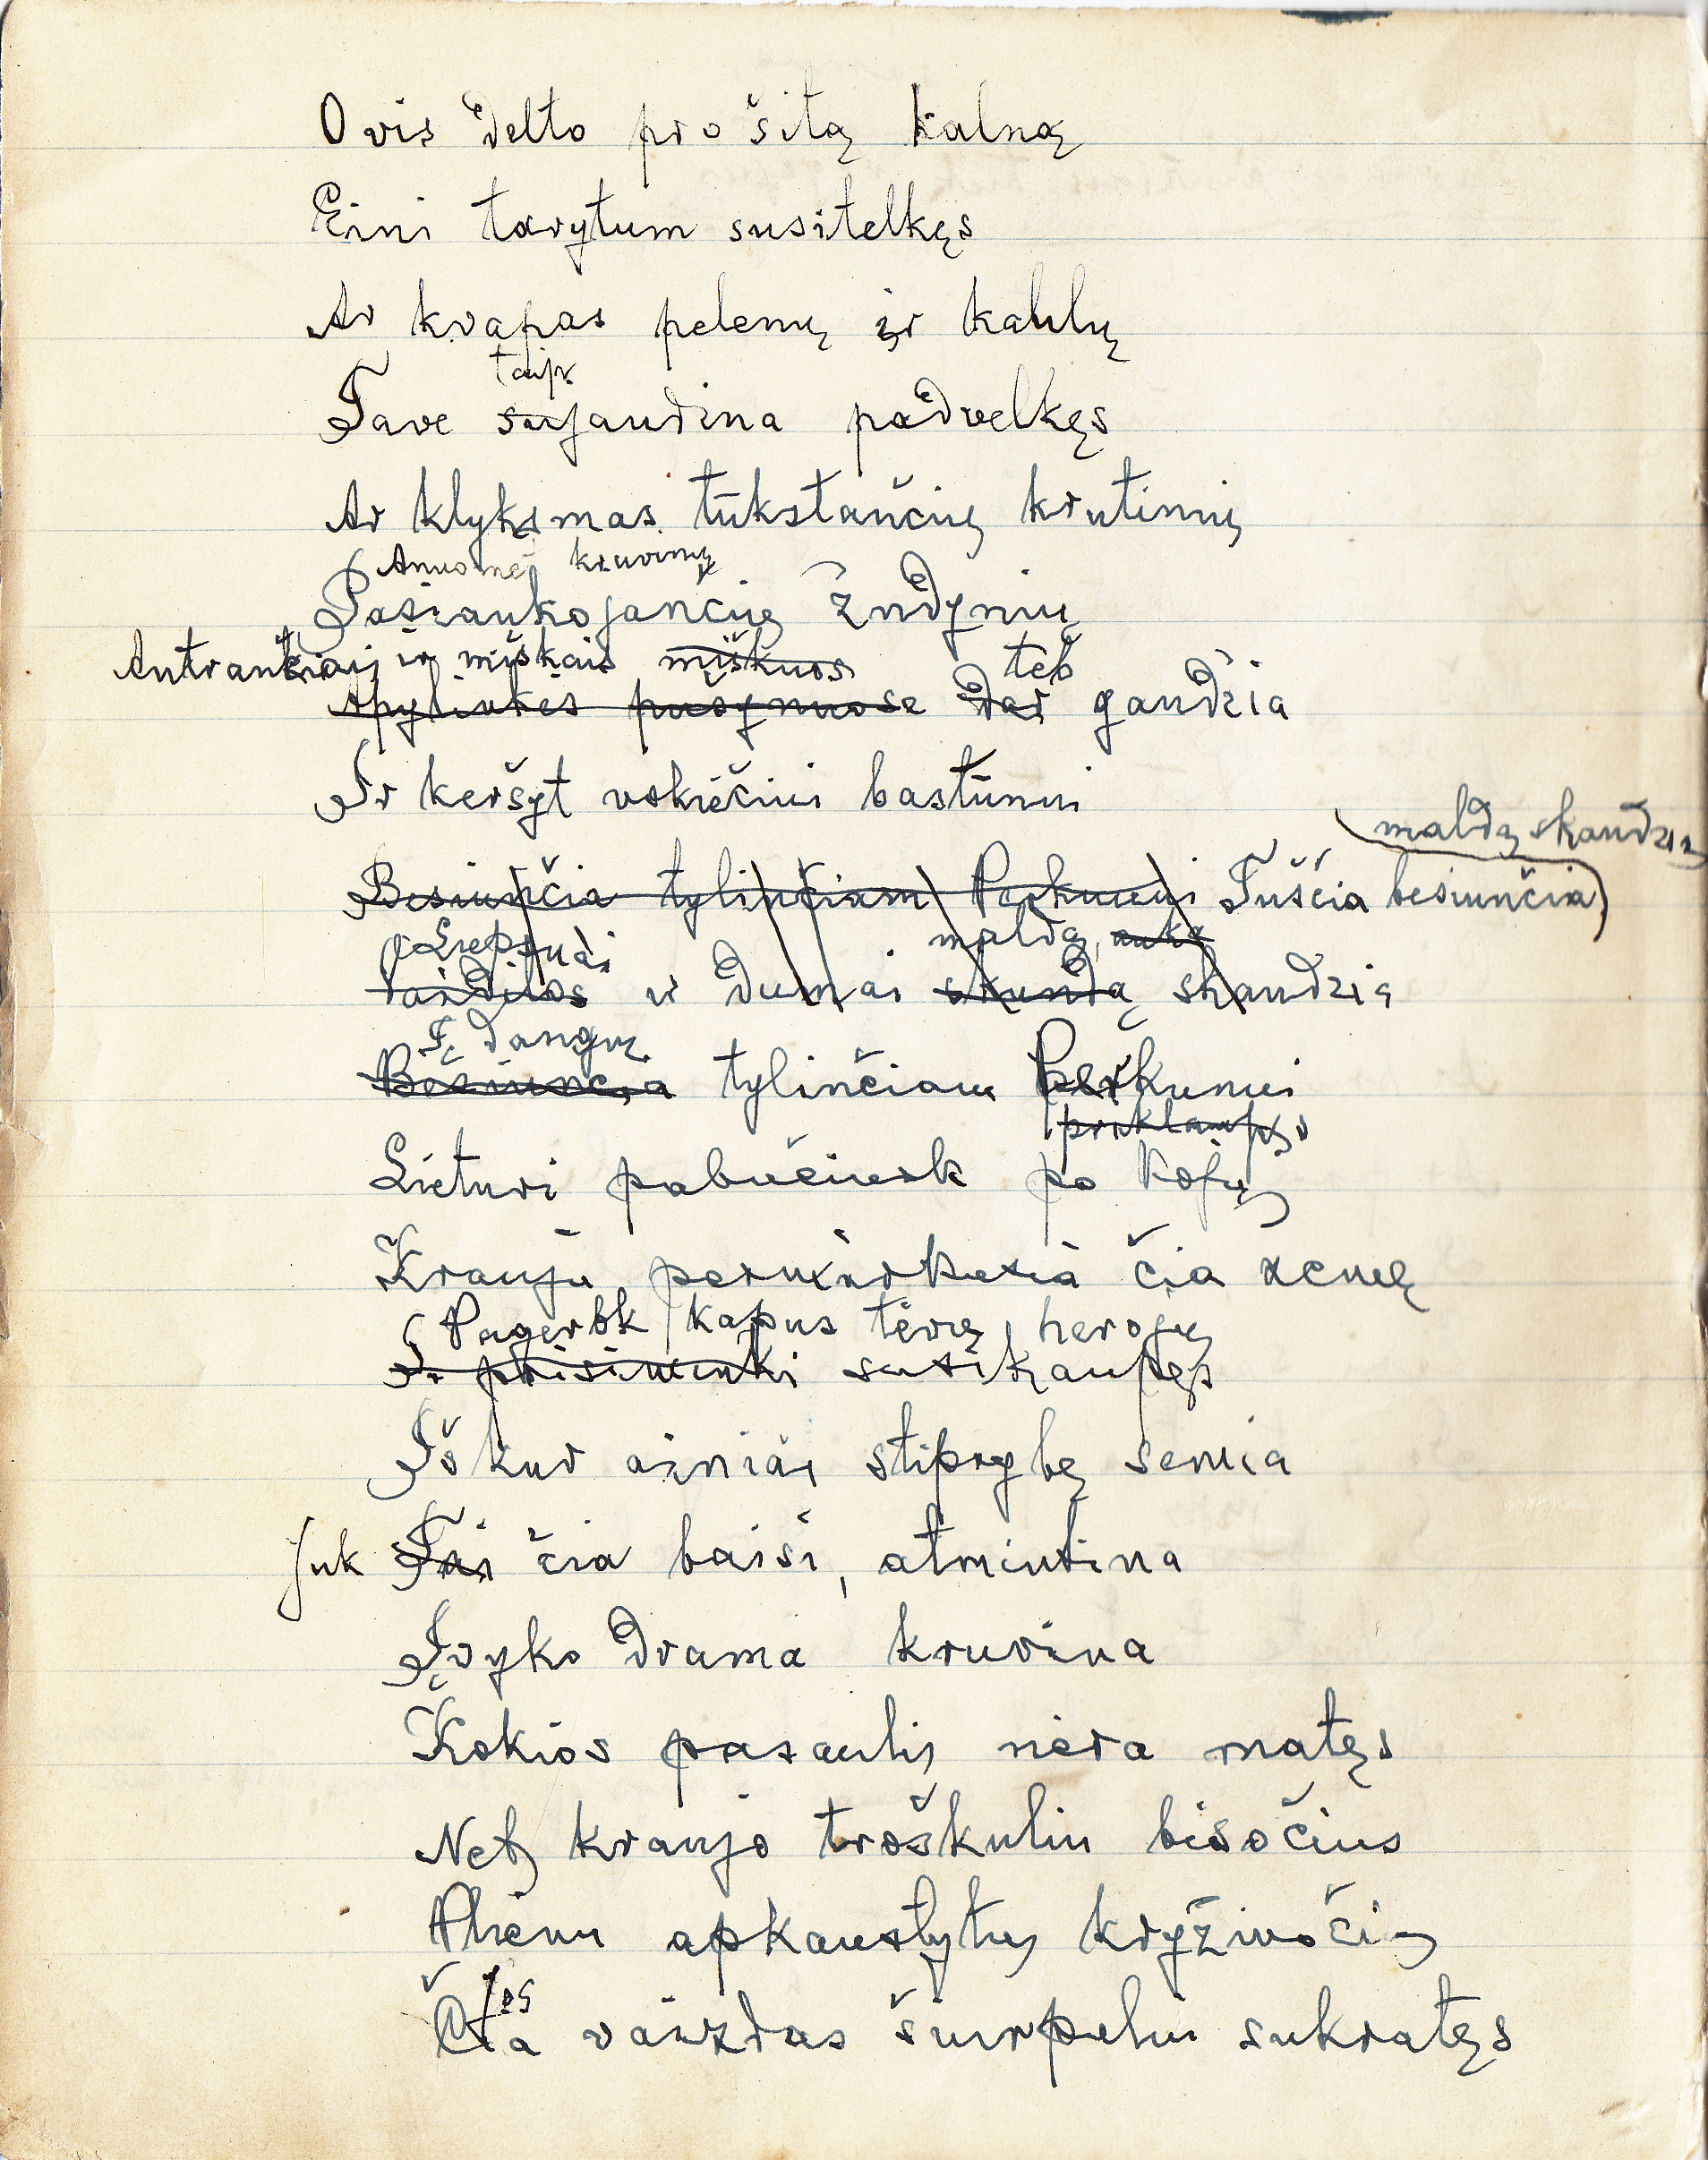 O vis delto pro šitą kalną
Eini tarytum susitelkęs
Ar kvapas pelenų ir kaulų
taip
Tave sujaudina padvelkęs
Ar klyksmas tūkstančių krutinių
Anuomet kruvinų
Pasiaukojančių žudynių
Antrankiais ir miškais miškuos teb
Apylinkės pušynuose dar gaudžia
Ir keršyt vokiečiui bastūnui
maldą skaudžią
Besiunčia tylinčiam Perkunui Tuščia besiunčia
O Liepsnai maldą, auką
aidilos ir dumai skundą skaudžią
Į dangų
Besiunčia tylinčiam Perkunui
priklaupęs
Lietuvi pabučiuok po kojų
Krauju permirkusią čia žemę
Pagerbk kapus tėvų, herojų
Ir prisimink susikaupęs
Iš kur ainiai stiprybę semia
Juk Tai čia baisi, atmintina
Įvyko drama kruvina
Kokios pasaulis nėra matęs
Net kraujo troškuliu bisočius
Plienu apkaustytus kryžiuočius
Jos
Čia vaizdas šiurpulin sukratęs